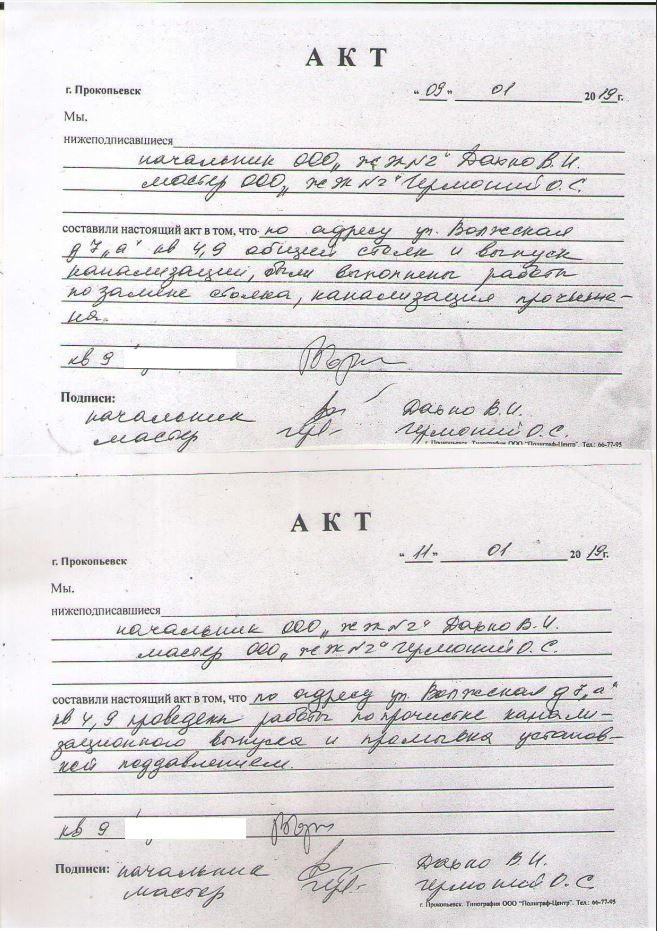 АКТ
г. Прокопьевск "09" 01 2019 г.
Мы.
нижеподписавшиеся
начальник ООО „ЖЖ№2" Дарко В.И.
мастер ООО „ЖЖ№2" Гермоний О.С.
составили настоящий акт в том, что по адресу ул. Волжская
д 7„а" кв 4,9 общий стояк и выпуск
канализации, были выполнены работы
по замене стояка, канализация прочищена-
на.
кв 9
Подписи:
начальник Дарко В.И.
мастер Гермоний О.С.
г. Прокопьевск. Типография ООО "Полиграф-Центр". Тел.: 66-77-95
АКТ
г. Прокопьевск "11" 01 2019 г.
Мы.
нижеподписавшиеся
начальник ООО „ЖЖ№2" Дарко В.И.
мастер ООО „ЖЖ№2" Гермоний О.С.
составили настоящий акт в том, что по адресу ул. Волжская д 7„а"
кв 4,9 проведены работы по прочистке канали-
зационного выпуска и промывка установ-
кой поддавлением.
кв 9
Подписи: начальник Дарко В.И.
мастер Гермоний О.С.
г. Прокопьевск. Типография ООО "Полиграф-Центр". Тел.: 66-77-95